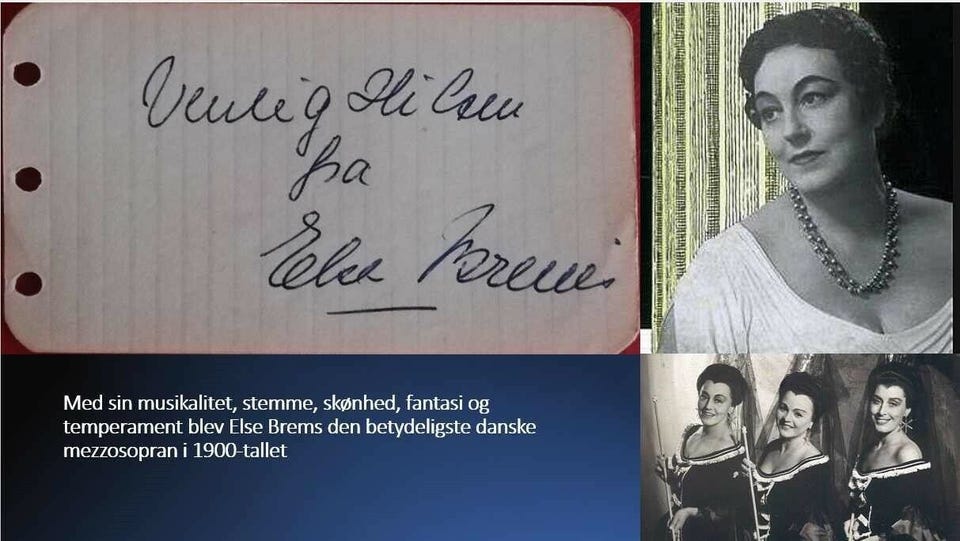 Venlig Hilsen
fra
Else Brems
Med sin musikalitet, stemme, skønhed, fantasi og
temperament blev Else Brems den betydeligste danske
mezzosopran i 1900-tallet